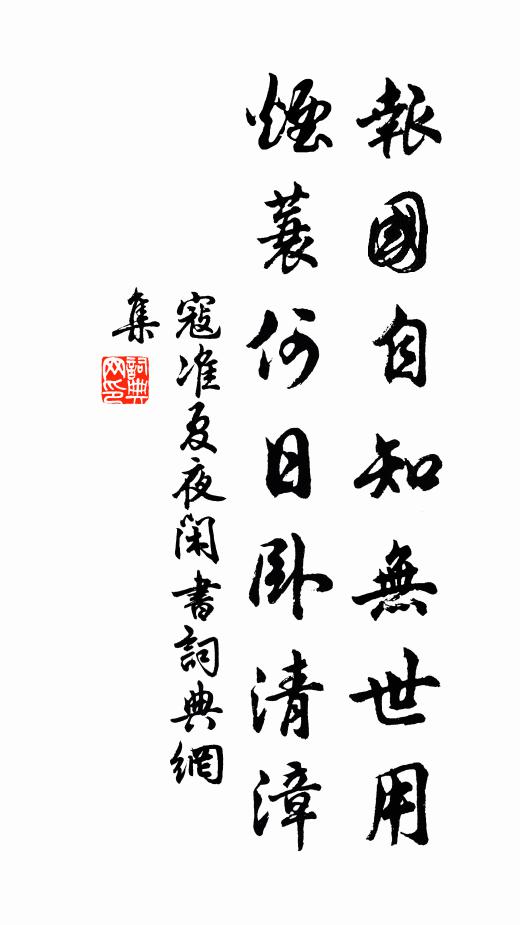 報國自知無世用
煙蓑何日臥清漳
寇准夏夜閑書詞典網
集
詞典
网印